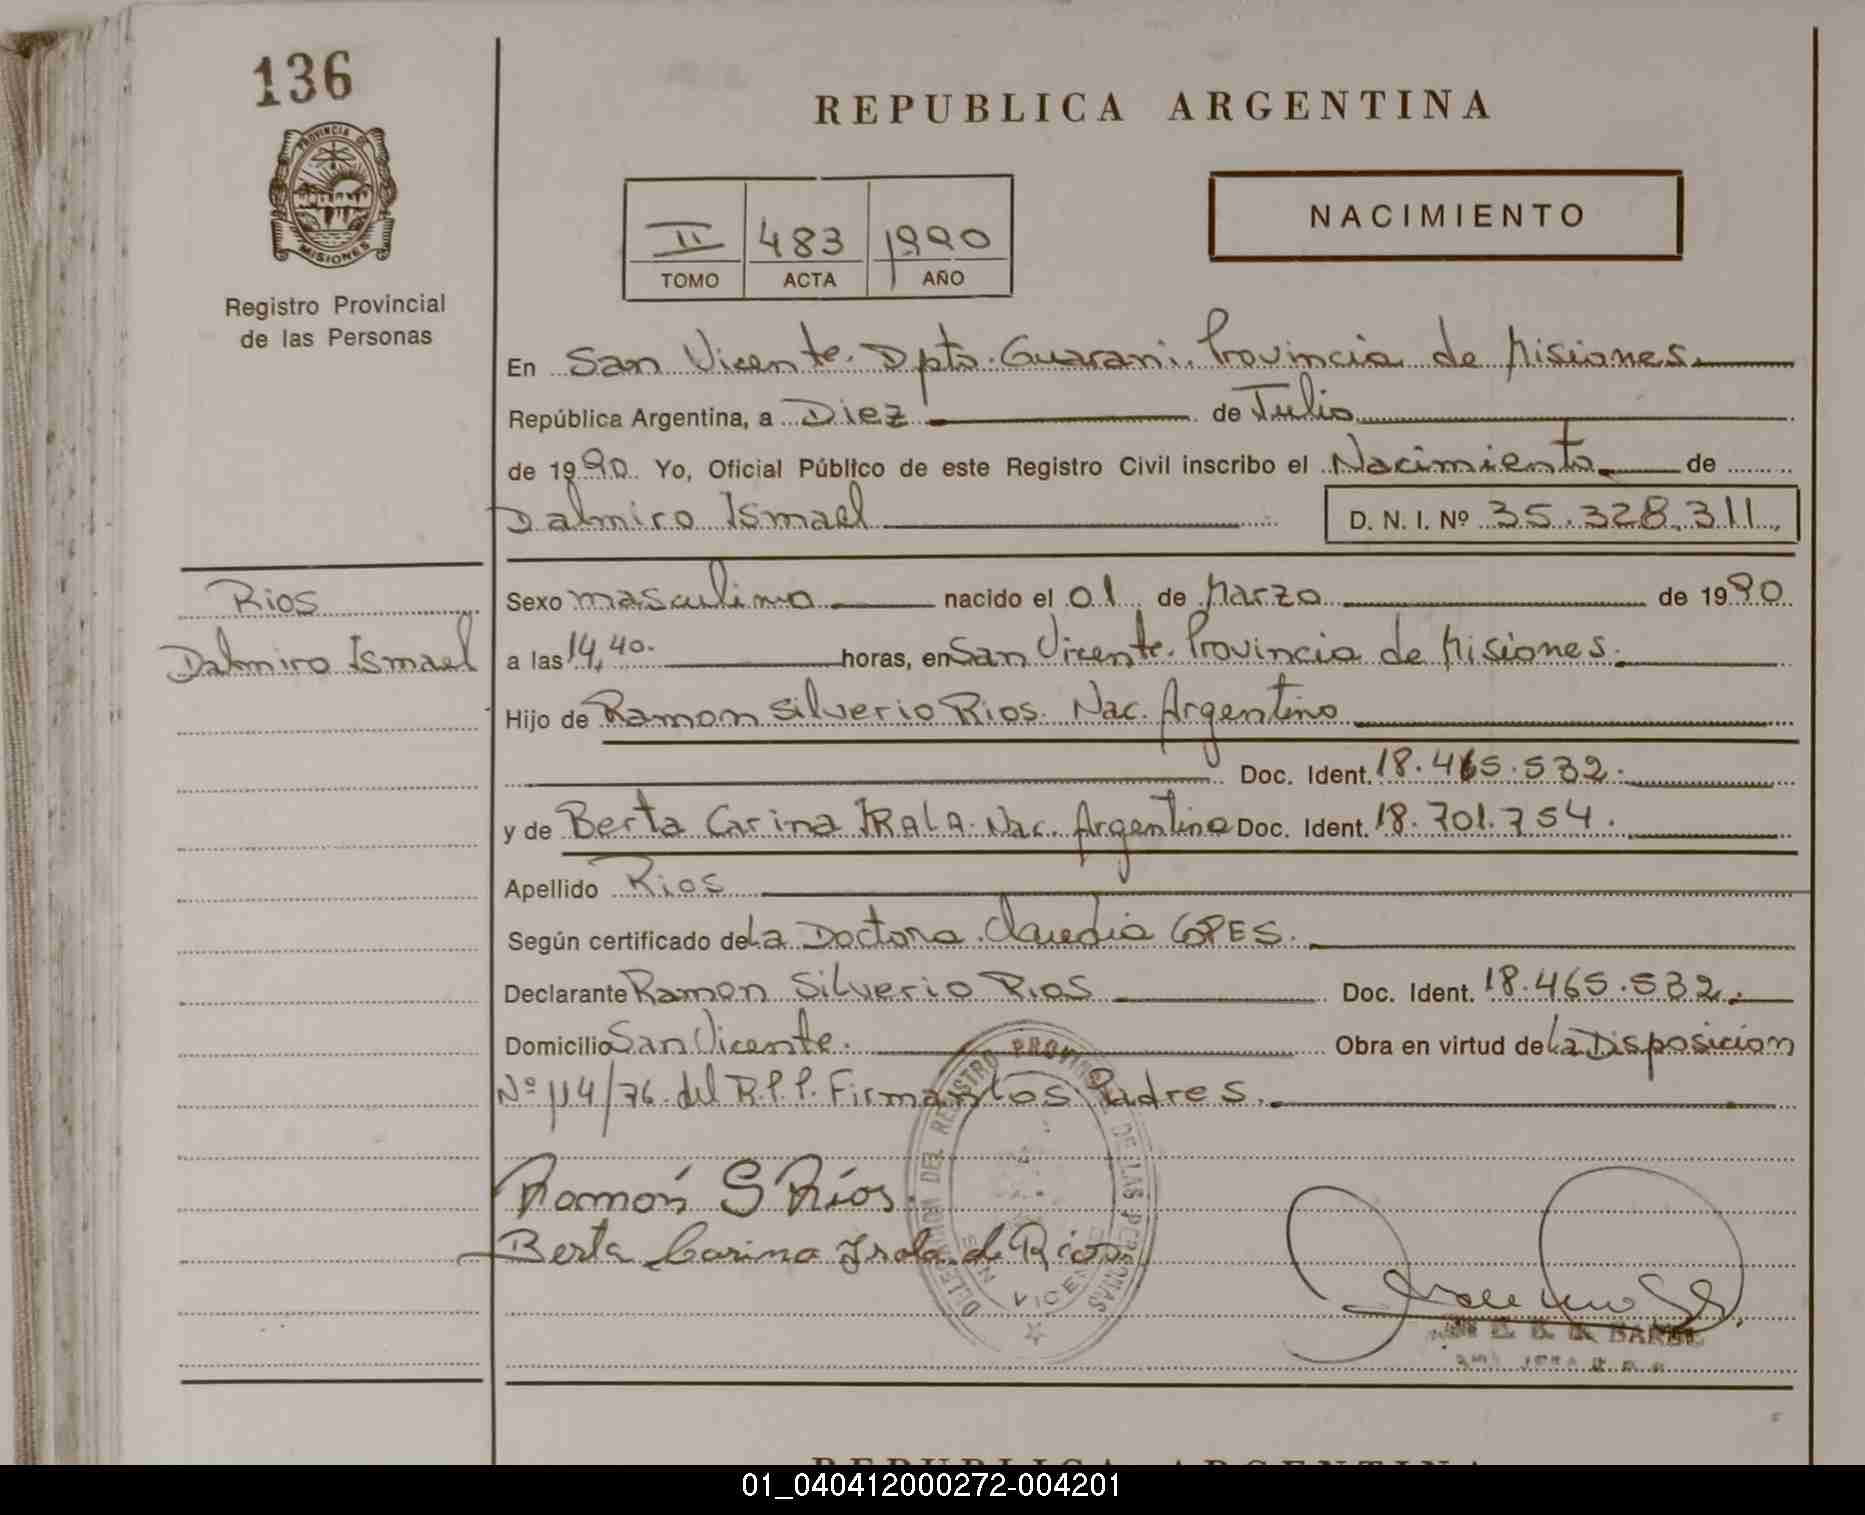 136
PROVINCIA DE
MISIONES
Registro Provincial
de las Personas
REPUBLICA ARGENTINA
II 483 1990
TOMO ACTA AÑO
NACIMIENTO
En San Vicente. Dpto. Guarani. Provincia de Misiones
República Argentina, a Diez de Julio
de 1990. Yo, Oficial Público de este Registro Civil inscribo el Nacimiento de
Dalmiro Ismael D. N. I. Nº 35.328.311.
Rios
Dalmiro Ismael
Sexo masculino nacido el 01 de Marzo de 1990
a las 14,40. horas, en San Vicente. Provincia de Misiones.
Hijo de Ramon Silverio Rios. Nac. Argentino
Doc. Ident. 18.465.532.
y de Berta Carina IRALA. Nac. Argentina Doc. Ident. 18.701.754.
Apellido Rios
Según certificado de La Doctora Claudia COPES.
Declarante Ramon Silverio Rios Doc. Ident. 18.465.532.
Domicilio San Vicente. Obra en virtud de La Disposicion
Nº 114/76 del R.P.P. Firman los Padres.
DELEGACION DEL REGISTRO PROVINCIAL DE LAS PERSONAS
SAN VICENTE
Ramón S Ríos
Berta Carina Irala de Rios
REPUBLICA ARGENTINA
01_040412000272-004201